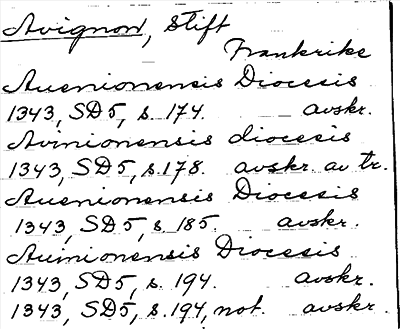 Avignon, Stift
Frankrike
Auenionensis Diocesis
1343, SD5, s. 174. avskr.
Avinionensis diocesis
1343, SD5, s. 178. avskr. av tr.
Auenionensis Diocesis
1343, SD5, s. 185. avskr.
Auinionensis Diocesis
1343, SD5, s. 194. avskr.
1343, SD5, s. 194, not. avskr.